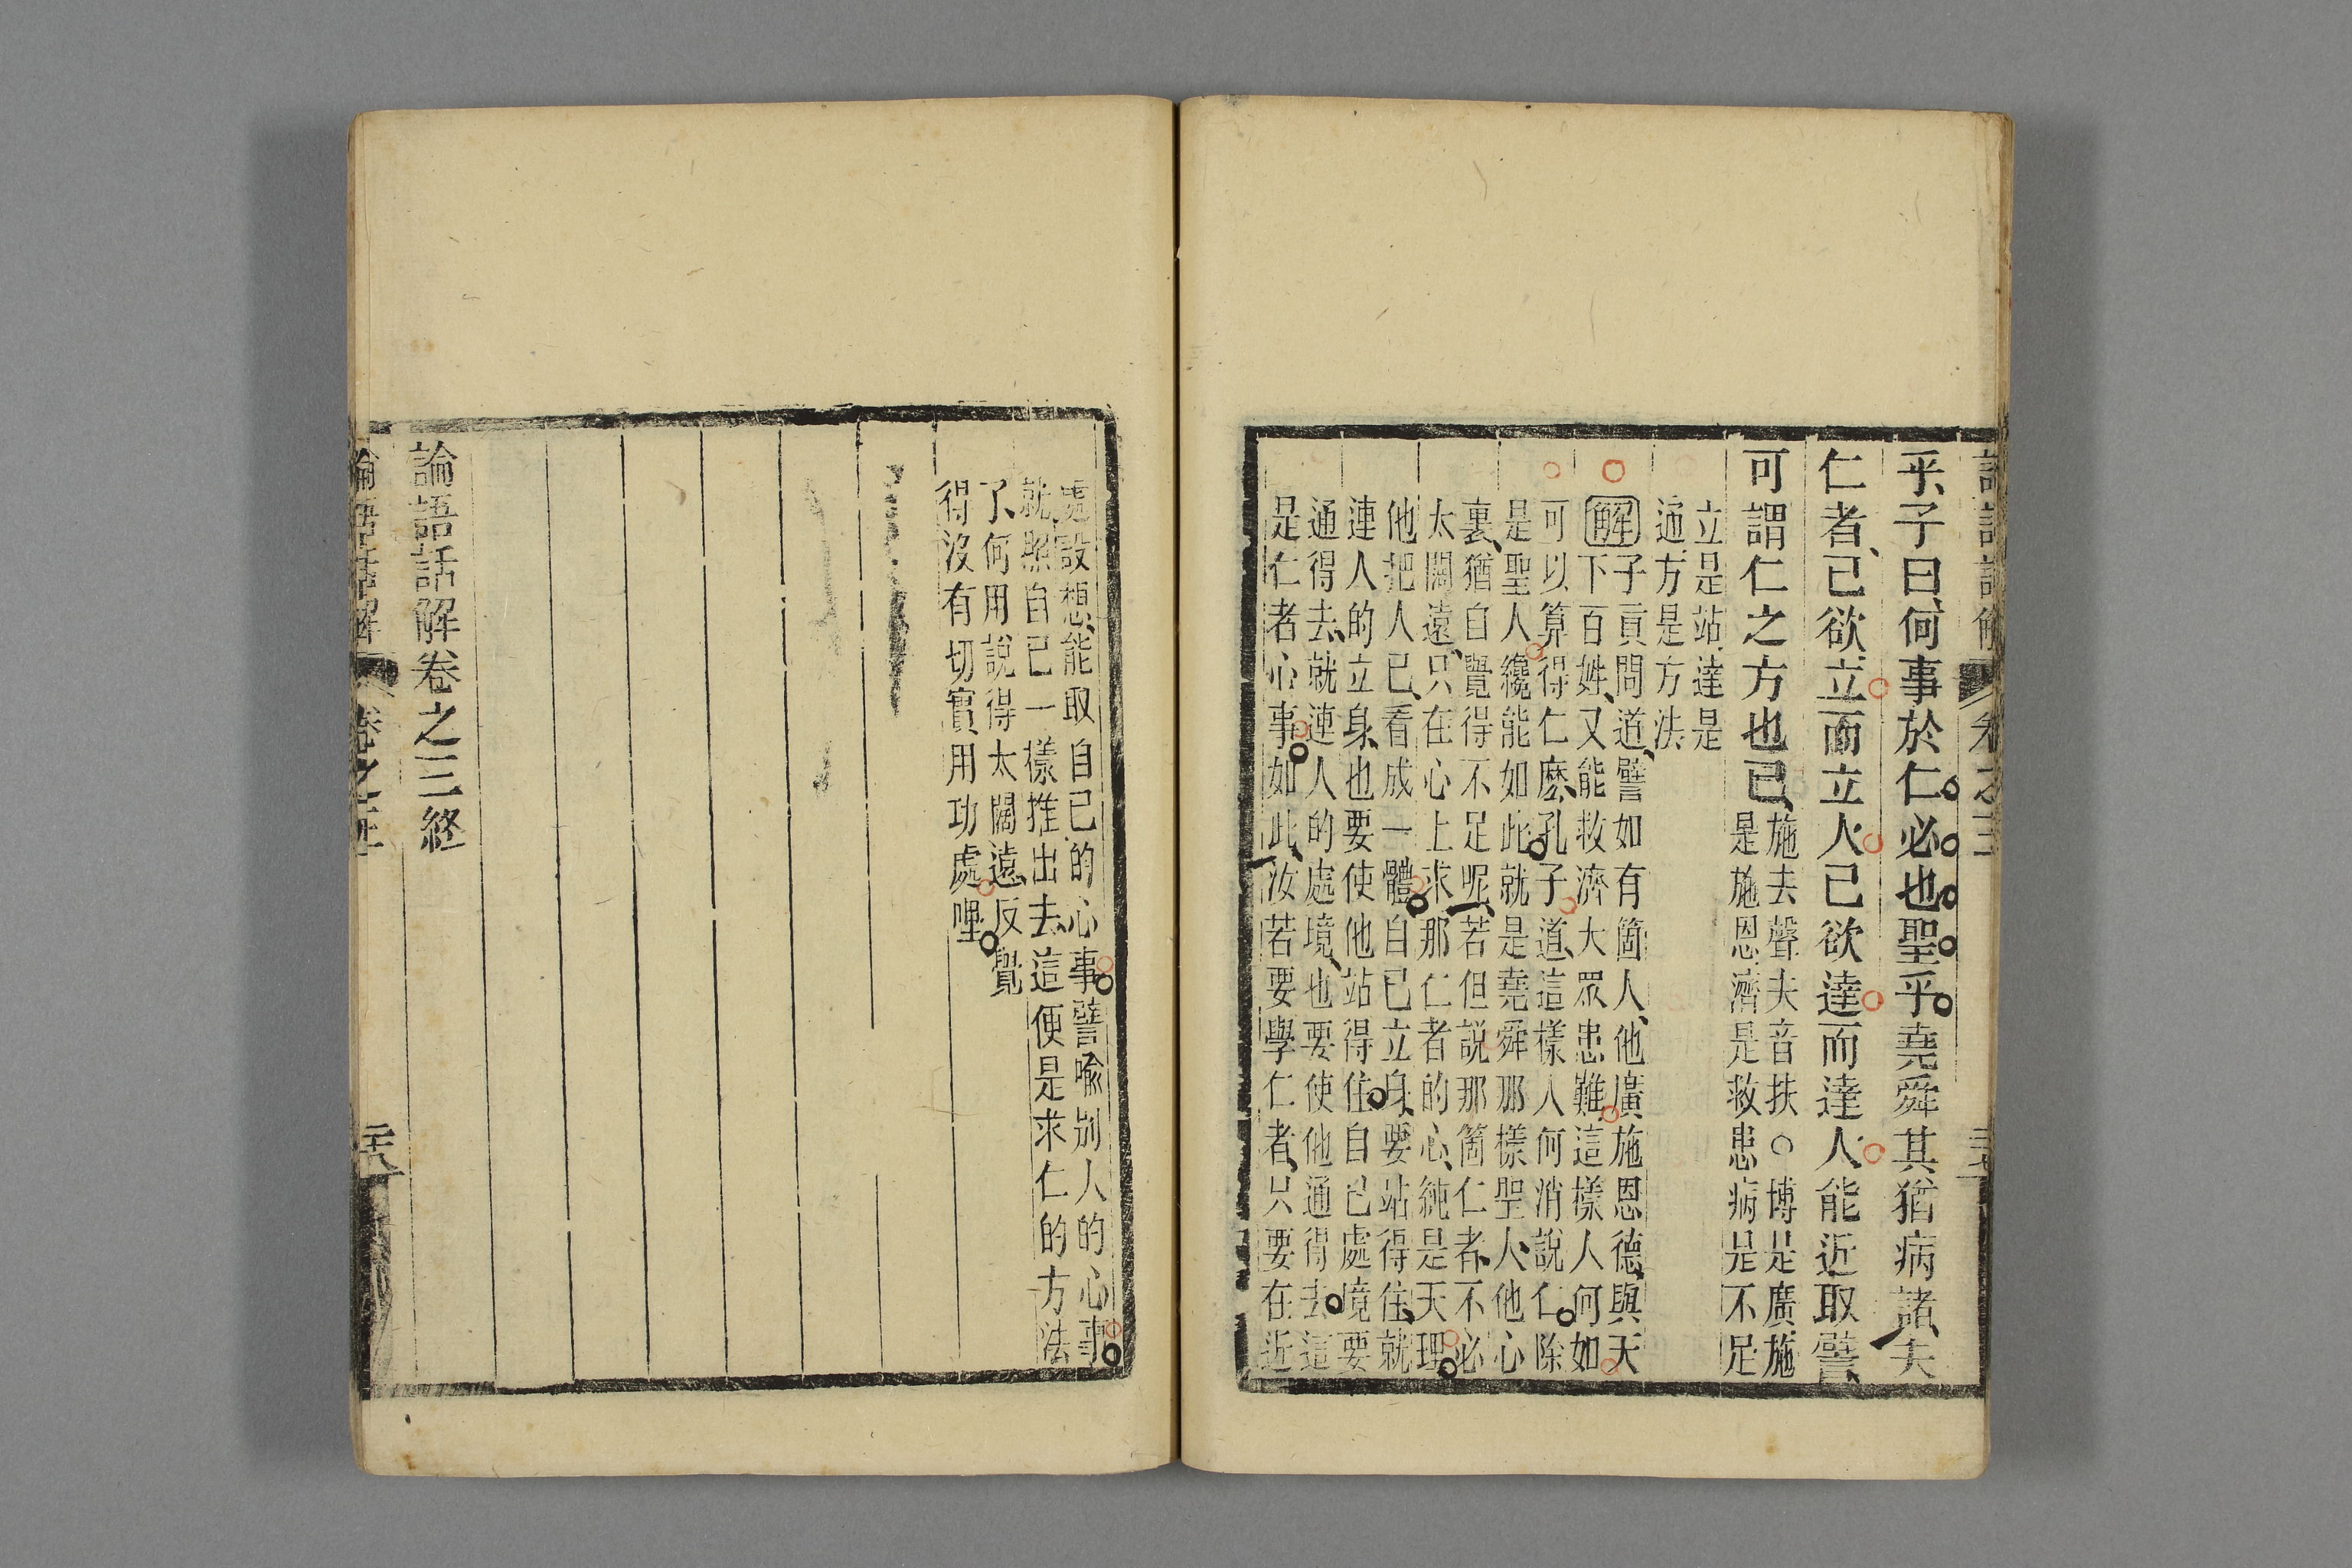 乎、子曰、何事於仁。必也聖乎。堯舜其猶病諸、夫
仁者、已欲立而立人、已欲達而達人、能近取譬、
可謂仁之方也已、
施去聲夫音扶○博是廣施
是施恩、濟是救患、病是不足、
立是站、達是
通、方是方法、
解 子貢問道、譬如有箇人、他廣施恩德、與天
下百姓、又能救濟大眾患難、這樣人何如、
可以算得仁麼、孔子道、這樣人何消說仁。除
是聖人纔能如此。就是堯舜那樣聖人、他心
裏、猶自覺得不足呢、若但說那箇仁者、不必
太闊遠、只在心上求、那仁者的心、純是天理。
他把人已、看成一體。自已立身、要站得住、就
連人的立身、也要使他站得住。自已處境、要
通得去、就連人的處境、也要使他通得去。這
是仁者心事。如此、汝若要學仁者、只要在近
處設想、能取自已的心事。譬喻別人的心事。
就照自已一樣推出去、這便是求仁的方法
了、何用說得太闊遠、反覺
得沒有切實用功處哩。
論語話解卷之三終
論語話解 卷之三